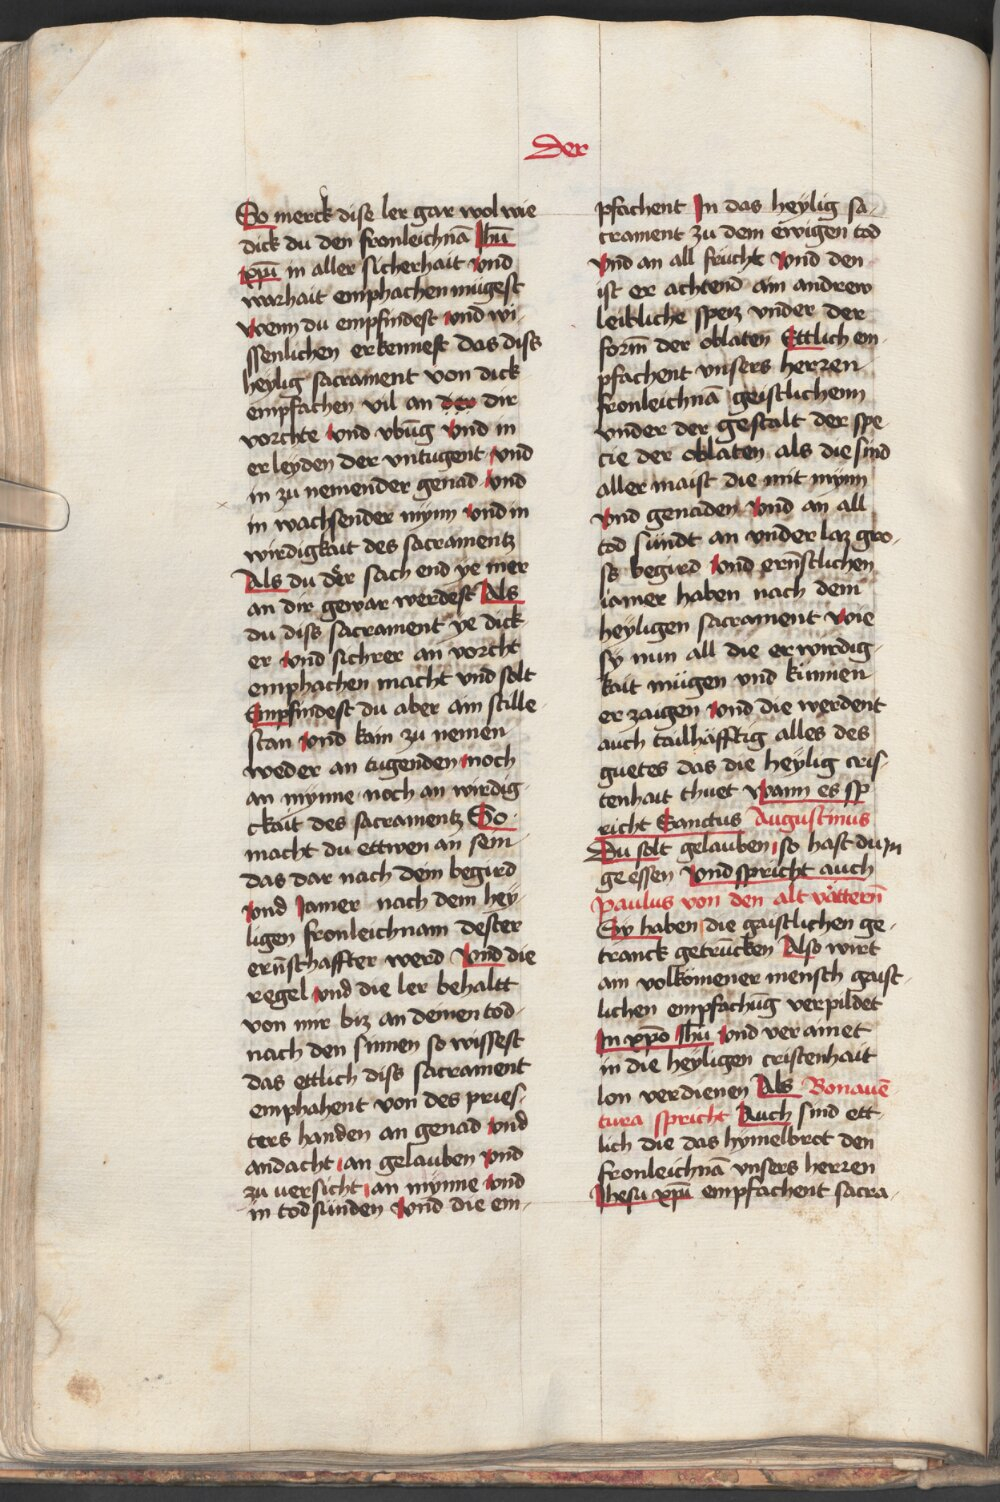 Der
So merck dise ler gar wol wie
dick du den fronleichnā Jhū
xp̄ū in aller sicherhait vnd
warhait emphachen mügest
wenn du empfindest vnd wi-
ssenlichen erkennest das diss
heylig sacrament von dick
empfachen vil an der dir
vorchte vnd vbūg vnd in
erleyden der vntugent vnd
in zu nemender genad vnd
in wachsender mynn vnd in
wirdigkait des sacramentz
Als du der sach end ye mer
an dir gewar werdest Als
du diss sacrament ye dick
er vnd sichrer an vorcht
emphachen macht vnd solt
Empfindest du aber ain stille
stan vnd kain zu nemen
weder an tugenden noch
an mynne noch an wirdig-
ckait des sacramentz So
macht du ettwen an sein
das dar nach dein begird
vnd Jamer nach dem hey-
ligen fronleichnam dester
ernschaffter werd Vnd die
regel vnd die ler behaltt
von mir biz an deinen tod
nach den sinnen so wissest
das ettlich diss sacrament
emphahent von des pries-
ters handen an genad vnd
andacht an gelauben vnd
zu versicht an mynne vnd
in todsünden vnd die em-
pfachent In das heylig sa-
crament zu dem ewigen tod
vnd an all frücht vnd den
ist er achtend ain andrew
leibliche speiz vnder der
form̄ der oblaten Ettlich em-
pfachent vnsers herren
fronleichnā geistlichenn
vnder der gestalt der spe
cie der oblaten als die sind
aller maist die mit mynn
vnd genaden vnd an all
tod sündt an vnder laz gro-
ss begird vnd ernstlichen
iamer haben nach dem
heyligen sacrament wie
sy nun all die erwirdig-
kait mügen vnd künnen
erzaigen vnd die werdent
auch tailhäfftig alles des
guetes das die heylig cris-
tenhait thuet wann es sp
richt Sanctus Augustinus
Du solt gelauben so hast du in
geessen Vnd spricht auch
Paulus von den alt vättern
Sy haben die gaistlichen ge-
tranck getruncken Also wirt
ain volkomener mensch gaist-
lichen empfachūg verpildet
In xp̄o Jhū vnd verainet
in die heyligen cristenhait
lon verdienen Als Bonauē-
tura spricht Auch sind ett-
lich die das hymelbrot den
fronleichnā vnsers herren
Jhesu xp̄i empfachent sacra-